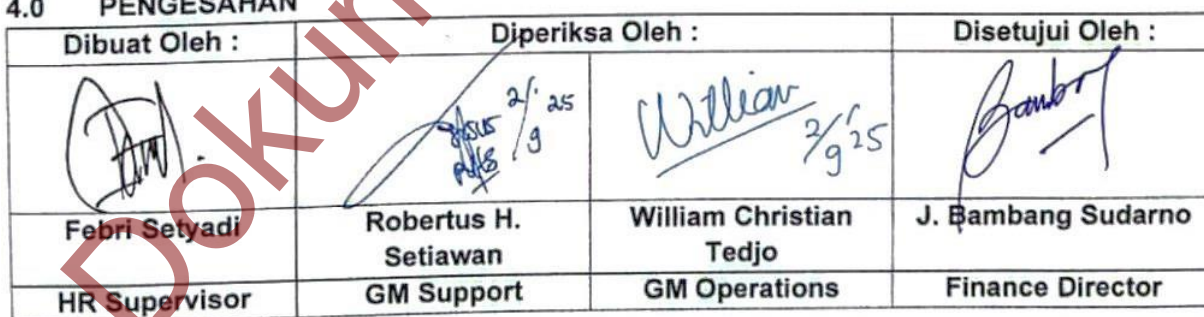 4.0 PENGESAHAN
Dibuat Oleh :
Diperiksa Oleh :
Disetujui Oleh :
2/9 '25
William
2/9 '25
Febri Setyadi
Robertus H.
Setiawan
William Christian
Tedjo
J. Bambang Sudarno
HR Supervisor
GM Support
GM Operations
Finance Director
Dokum